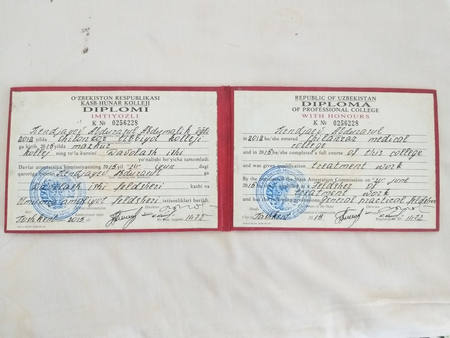 O'ZBEKISTON RESPUBLIKASI
KASB-HUNAR KOLLEJI
DIPLOMI
IMTIYOZLI
K № 0256228
Kendjayev Abdurasul Abdumalik
2012 yilda Chilonzor tibbiyot kolleji
ga kirib, 2015 yilda mazkur
kollej ning to'la kursini Davolash ishi
yo'nalishi bo'yicha tamomladi.
Davlat attestatsiya komissiyasining 2015 yil iyun dagi
qaroriga binoan Kendjayev Abdurasul ga
Davolash ishi feldsheri kasbi va
Umumiy amaliyot feldsheri ixtisosliklari berildi.
Toshkent 2015
REPUBLIC OF UZBEKISTAN
DIPLOMA
OF PROFESSIONAL COLLEGE
WITH HONOURS
K № 0256228
Kendjayev Abdurasul
in 2012 he/she entered Chilanzar medical
college
and in 2015 he/she completed a full course of this college
and was given qualification treatment work
By the decision of the State Attestation Commission on june
2015 Feldsher of
treatment work
general practical feldsher
Tashkent 2015